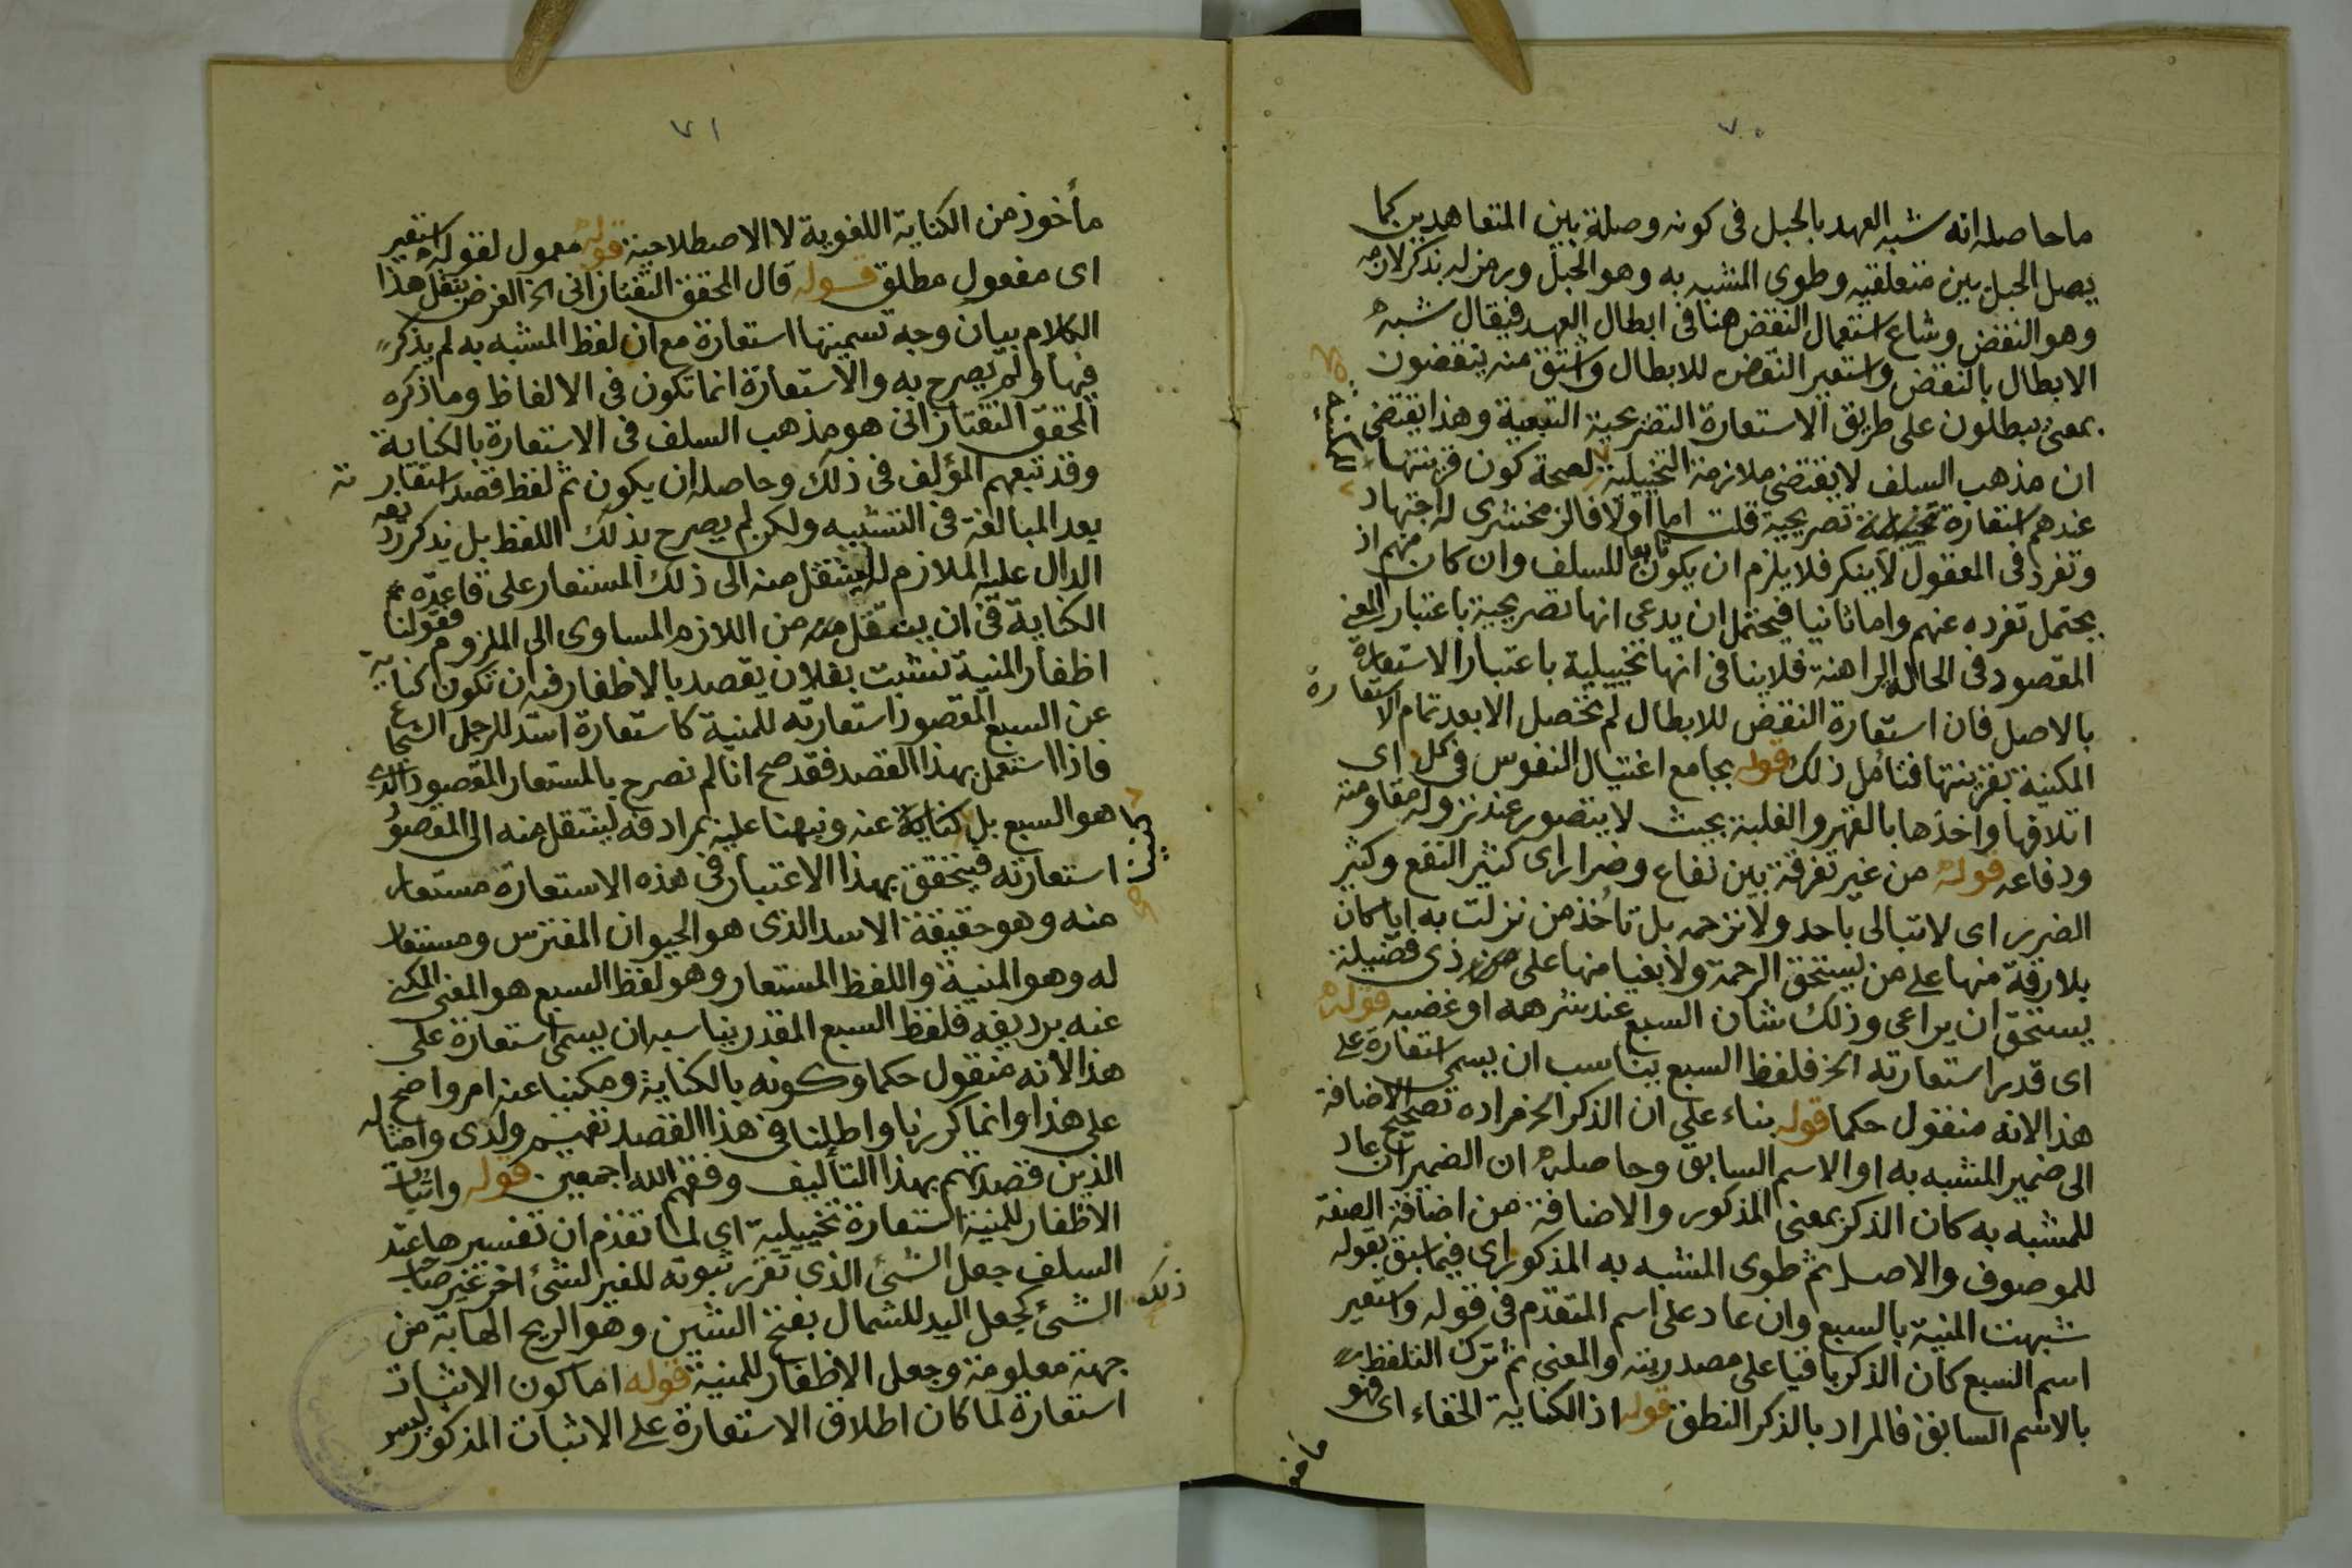 ٧٠
ما حاصله انه شبه العهد بالحبل فى كونه وصلة بين المتعاهدين كما
يصل الحبل بين متعلقيه وطوى المشبه به وهو الحبل ورمز له بذكر لازمه
وهو النقض وشاع استعمال النقض هنا فى ابطال العهد فيقال شبه
الابطال بالنقض واستعير النقض للابطال واشتق منه ينقضون
بمعنى يبطلون على طريق الاستعارة التصريحية التبعية وهذا يقتضى
ان مذهب السلف لا يقتضى ملازمة التخييلية لصحة كون قرينتها
المكنية
عندهم استعارة تصريحية قلت اما اولا فالزمخشرى له اجتهاد
وتفرد فى المعقول لا ينكر فلا يلزم ان يكون تابعا للسلف وان كان منهم اذ
يحتمل تفرده عنهم واما ثانيا فيحتمل ان يدعى انها تصريحية باعتبار المعنى
المقصود فى الحالة الراهنة فلا ينافى انها تخييلية باعتبار الاستعارة
بالاصل فان استعارة النقض للابطال لم تحصل الا بعد تمام الاستعارة
المكنية بقرينتها فتامل ذلك قوله بجامع اغتيال النفوس فى كل اى
اتلافها واخذها بالقهر والغلبة بحيث لا يتصور عند نزوله مقاومته
ودفاعه قوله من غير تفرقة بين نفاع وضرار اى كثير النفع وكثير
الضرر اى لا تبالى باحد ولا ترحمه بل تأخذ من نزلت به ايا كان
بلا رقة منها على من يستحق الرحمة ولا بقيا منها على ذى فضيلة
يستحق ان يراعى وذلك شان السبع عند شرهه او غضبه قوله
اى قدر استعارته الخ فلفظ السبع يناسب ان يسمى استعارة على
هذا لانه منقول حكما قوله بناء على ان الذكر الخ مراده تصحيح الاضافة
الى ضمير المشبه به او الاسم السابق وحاصله ان الضمير ان عاد
للمشبه به كان الذكر بمعنى المذكور والاضافة من اضافة الصفة
للموصوف والاصل ثم طوى المشبه به المذكور اى فيما سبق بقوله
شبهت المنية بالسبع وان عاد على اسم المتقدم فى قوله واستعير
اسم السبع كان الذكر باقيا على مصدريته والمعنى ثم ترك التلفظ
بالاسم السابق فالمراد بالذكر النطق قوله اذ الكناية الخفاء اى فهو
ماخو
٧١
مأخوذ من الكناية اللغوية لا الاصطلاحية قوله معمول لقوله استعير
اى مفعول مطلق قوله قال المحقق التفتازانى الخ الغرض بنقل هذا
الكلام بيان وجه تسميتها استعارة مع ان لفظ المشبه به لم يذكر
فيها ولم يصرح به والاستعارة انما تكون فى الالفاظ وما ذكره
المحقق التفتازانى هو مذهب السلف فى الاستعارة بالكناية
وقد تبعهم المؤلف فى ذلك وحاصله ان يكون ثم لفظ قصد استعارته
بعد المبالغة فى التشبيه ولكن لم يصرح بذلك اللفظ بل يذكر رديفه
الدال عليه الملازم له لينتقل منه الى ذلك المستعار على قاعدة
الكناية فى ان ينتقل من اللازم المساوى الى الملزوم فقولنا
اظفار المنية نشبت بفلان يقصد بالاظفار فيه ان تكون كناية
عن السبع المقصود استعارته للمنية كاستعارة اسد للرجل الشجاع
فاذا استعمل بهذا القصد فقد صح انا لم نصرح بالمستعار المقصود الذى
هو السبع بل كناية عنه ونبهنا عليه بمرادفه لينتقل منه الى المقصود
استعارته فيتحقق بهذا الاعتبار فى هذه الاستعارة مستعار
منه وهو حقيقة الاسد الذى هو الحيوان المفترس ومستعار
له وهو المنية واللفظ المستعار وهو لفظ السبع هو المعنى المكنى
عنه برديفه فلفظ السبع المقدر يناسبه ان يسمى استعارة على
هذا لانه منقول حكما وكونه بالكناية ومكنيا عنه امر واضح
على هذا وانما كررنا واطلنا فى هذا القصد تفهيم ولدى وامثاله
الذين قصدتهم بهذا التأليف وفقهم الله اجمعين قوله واثبات
الاظفار للمنية استعارة تخييلية اى لما تقدم ان تفسيرها عند
السلف جعل الشئ الذى تقرر ثبوته للغير لشئ اخر غير صاحب
ذلك
الشئ كجعل اليد للشمال بفتح الشين وهو الريح الهابة من
جهة معلومة وجعل الاظفار للمنية قوله اما كون الاثبات
استعارة لما كان اطلاق الاستعارة على الاثبات المذكور ليس